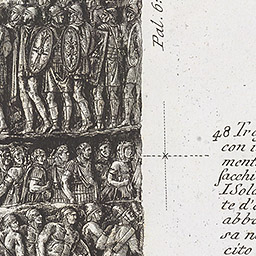 Pal. 6
48 Tra
con i
ment
sacchi
I Sola
te d'a
abba
sa n
cito